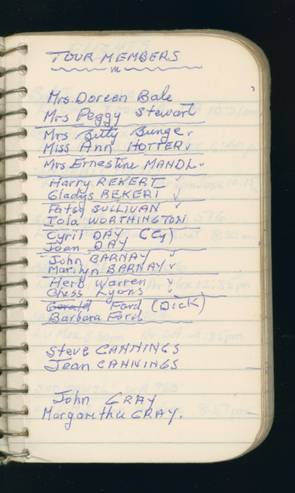 TOUR MEMBERS
Mrs Doreen Bale
Mrs Peggy Stewart
Mrs Betty Bunge.
Miss Ann HOTTER
Mrs Ernestine MANDL.
Harry REKERT
Gladys REKERT
Patsy SULLIVAN
Iola WORTHINGTON
Cyril DAY (Cy)
Joan DAY
John BARNAY
Marilyn BARNAY
Herb Warren
Chess Lyons
Gerald Ford (DICK)
Barbara Ford
Steve CANNINGS
Jean CANNINGS
John GRAY
Margaretha GRAY.